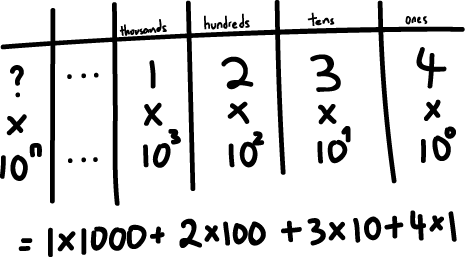 thousands hundreds tens ones
? ... 1 2 3 4
x x x x x
10^n ... 10^3 10^2 10^1 10^0
= 1x1000 + 2x100 + 3x10 + 4x1